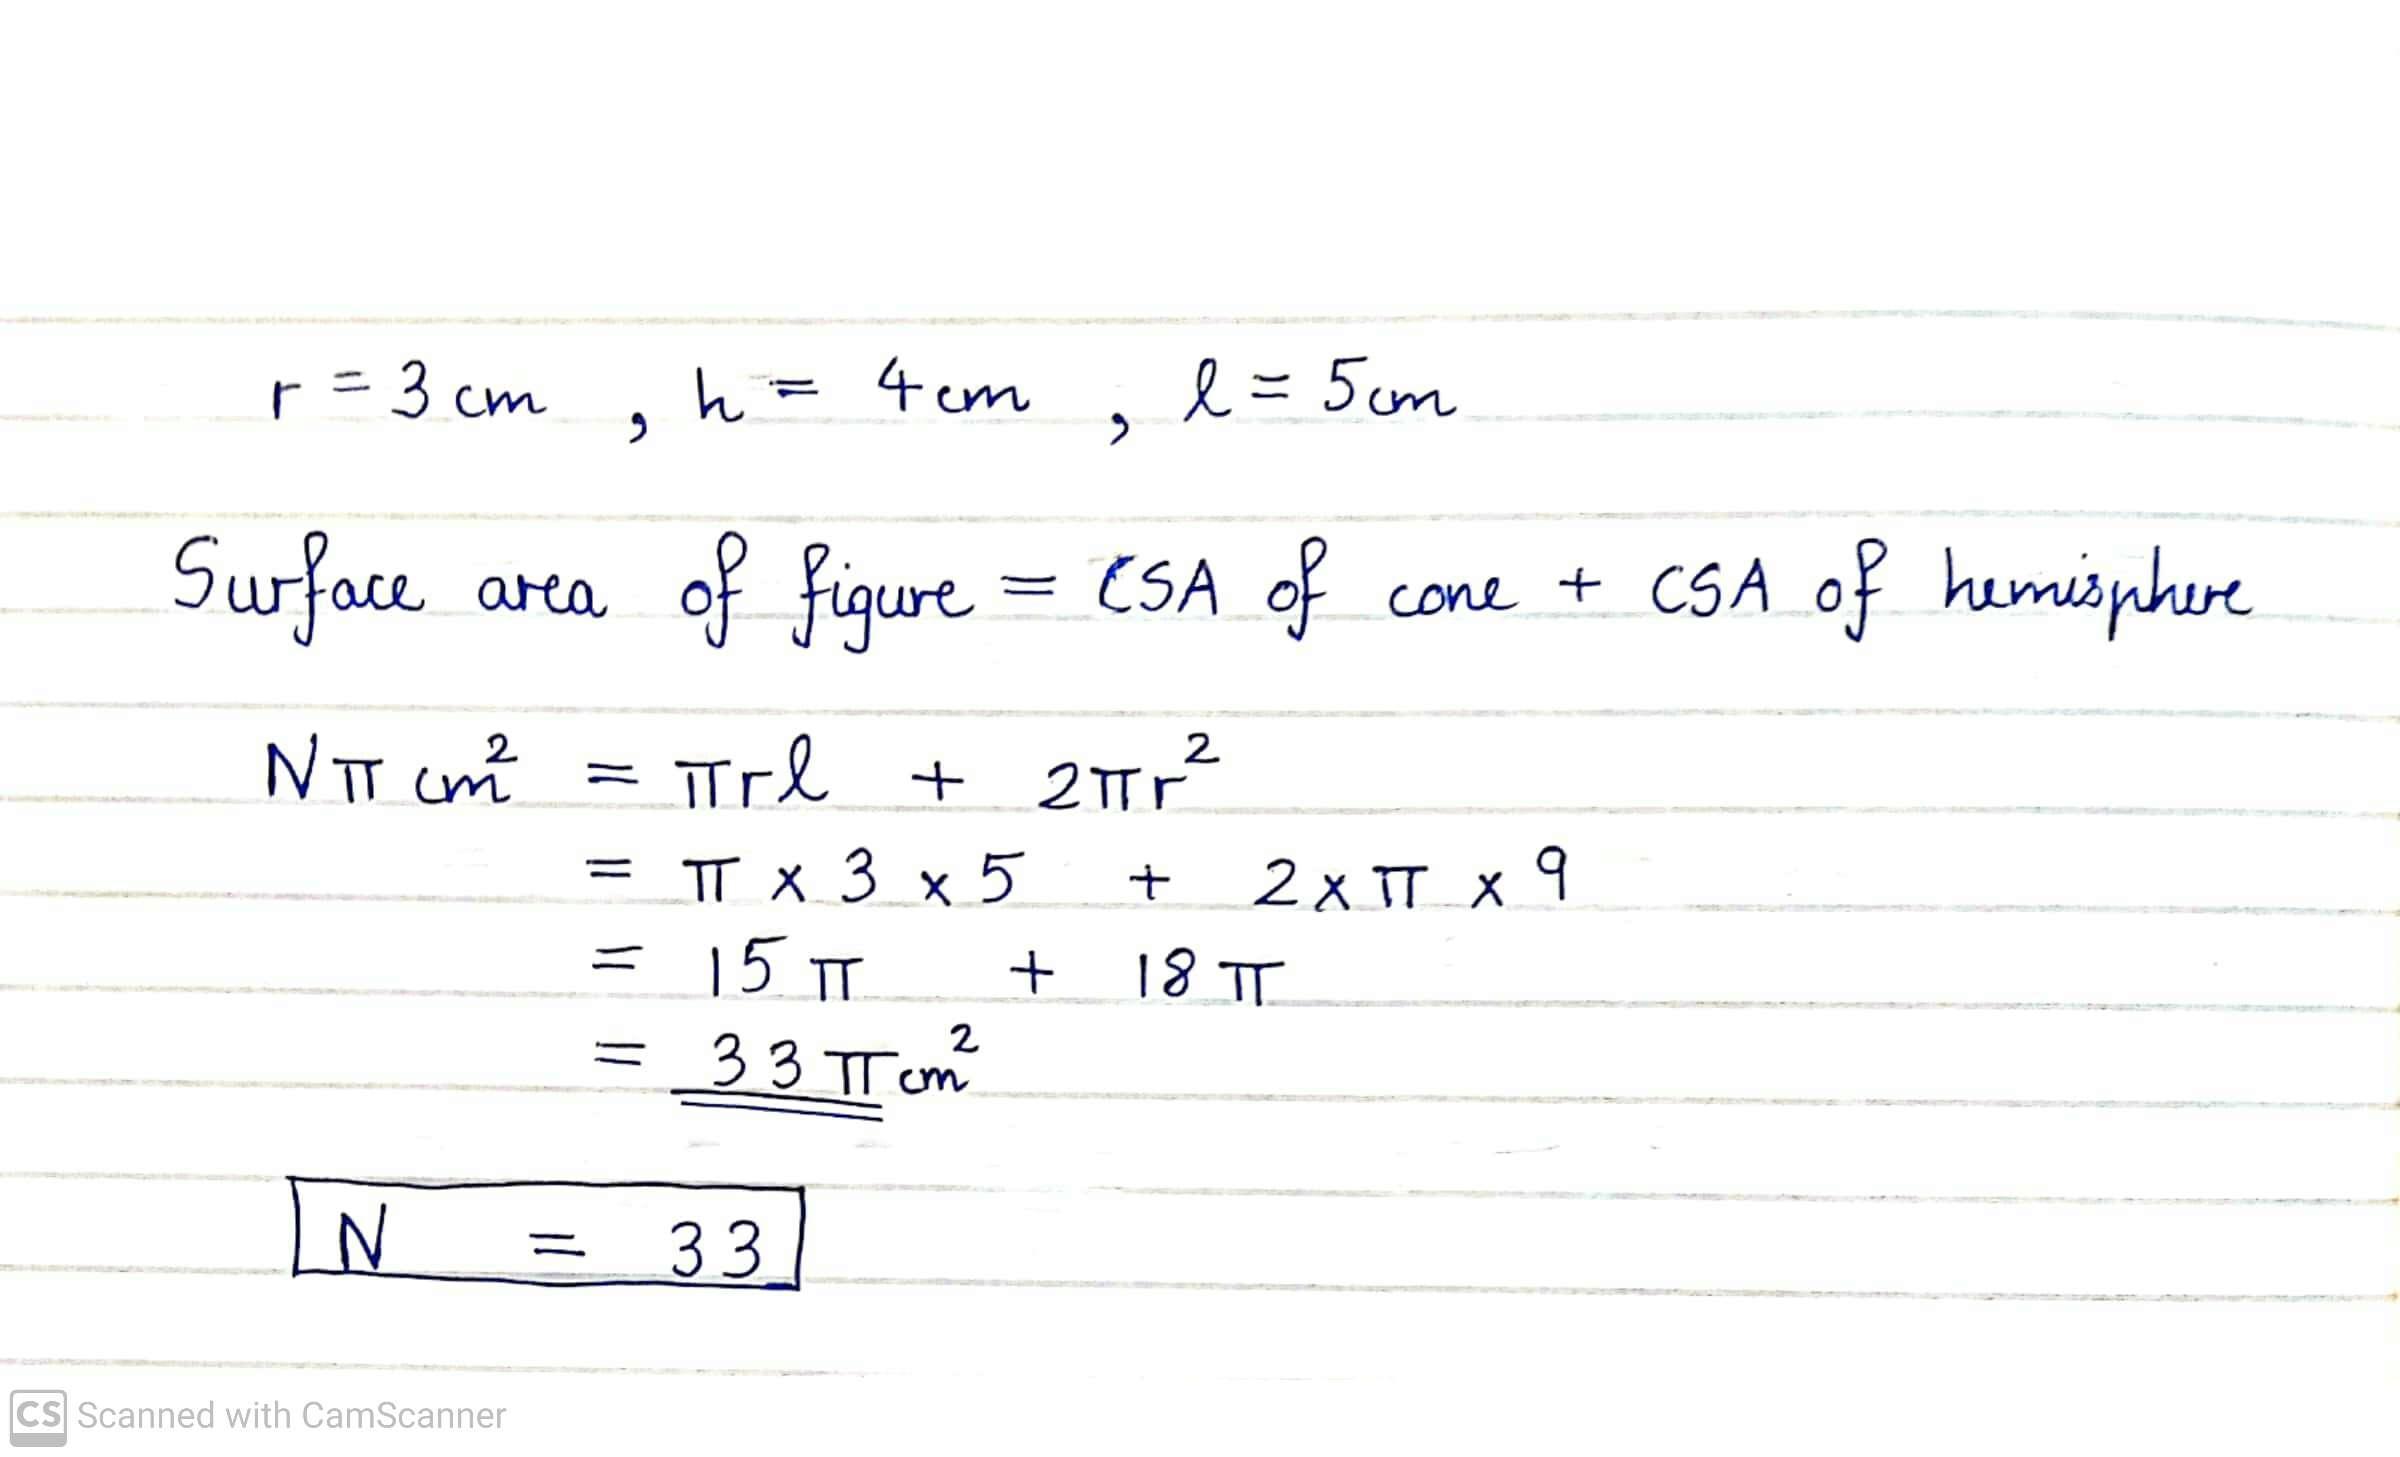 r = 3 cm , h = 4 cm , l = 5 cm
Surface area of figure = CSA of cone + CSA of hemisphere
Nπ cm² = πrl + 2πr²
= π × 3 × 5 + 2 × π × 9
= 15 π + 18 π
= 33 π cm²
N = 33
CS Scanned with CamScanner